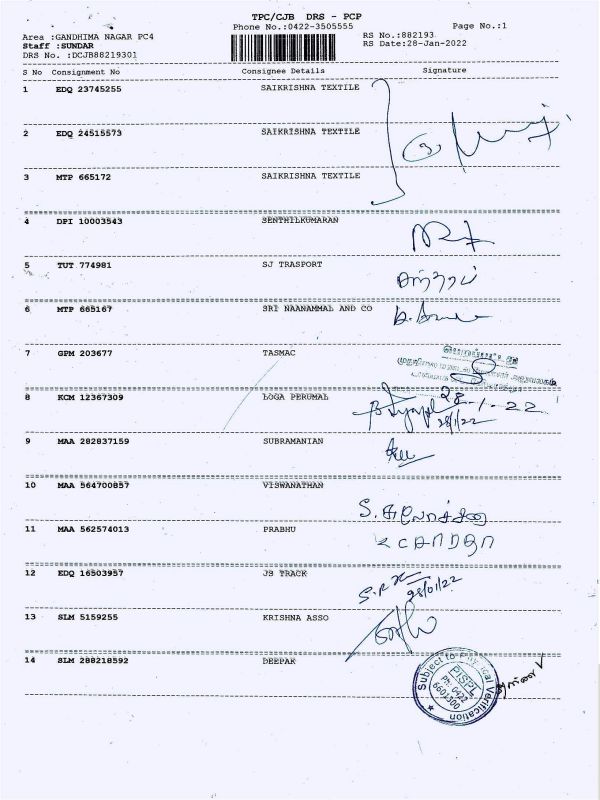 TPC/CJB DRS - PCP
Phone No.:0422-3505555
Page No.:1
Area :GANDHIMA NAGAR PC4
RS No.:882193
Staff :SUNDAR
RS Date:28-Jan-2022
DRS No. :DCJB88219301
S No Consignment No Consignee Details Signature
1 EDQ 23745255 SAIKRISHNA TEXTILE
2 EDQ 24515573 SAIKRISHNA TEXTILE
3 MTP 665172 SAIKRISHNA TEXTILE
4 DPI 10003543 SENTHILKUMARAN
5 TUT 774981 SJ TRASPORT
6 MTP 665167 SRI NAANAMMAL AND CO
7 GPM 203677 TASMAC
8 KCM 12367309 LOGA PERUMAL
28-1-22
28/1/22
9 MAA 282837159 SUBRAMANIAN
10 MAA 564700857 VISWANATHAN
11 MAA 562574013 PRABHU
12 EDQ 16503957 JS TRACK
28/01/22
13 SLM 5159255 KRISHNA ASSO
14 SLM 288218592 DEEPAK
Subject to Physical Verification
PISPL
PH: 0422
6601300